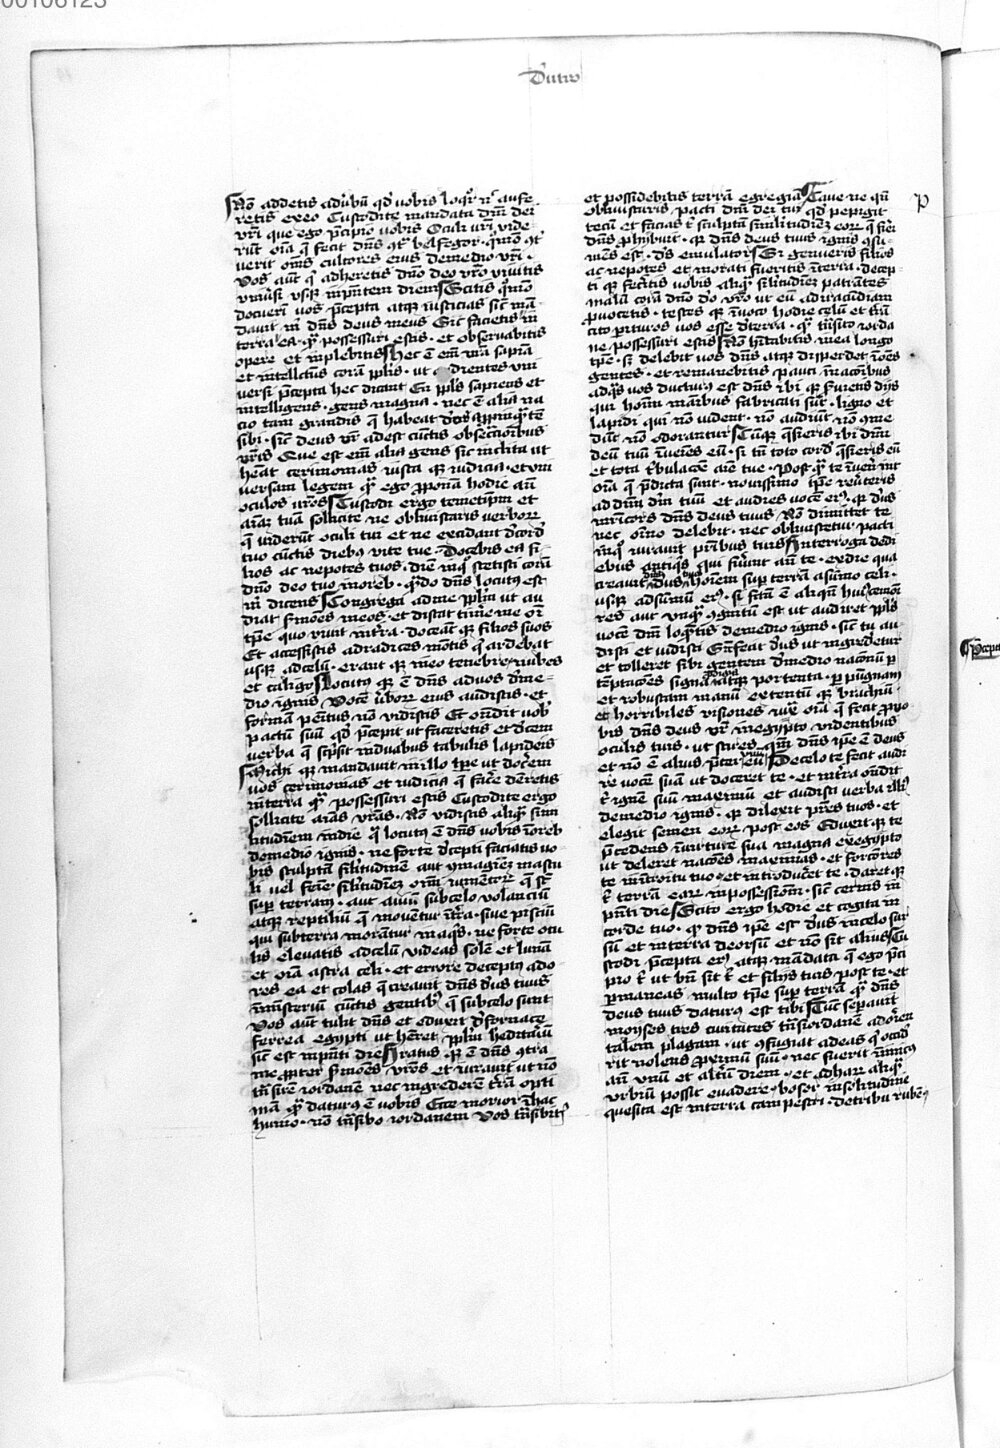 00106123
Deutro
Nō addetis ad ûbū qd vobis loqr n̄ aufe
retis ex eo Custodite mandata dn̄i dei
vr̄i que ego p̄cipio vobis Oculi vr̄i vide
rūt oīa q̄ fecit dn̄s ɔt̄ belfegor · qūo ɔt̄
verit oīns cultores eius de medio vr̄i ·
Vos aūt q̄ adheretis dn̄o deo vr̄o vivitis
vniūsi vsq̄ inp̄ntem diem Scitis qūo
docueri vos p̄cepta atq̄ iusticias sic mā
davit m̄ dn̄s deus meus Sic facietis in
terra ea qm̄ possessuri estis · et observabitis
opere et inplebitis Hec ē em̄ vr̄a sapīa
et intellctus corā pplis · ut audientes vni
versi p̄cepta hec dicant En ppls sapiens et
intelligens · gens magna · nec ē alia na
cio tam grandis q̄ habeat deos appinqr̄te
sibi · sic deus nr̄ adest cūctis obsecr̄cōibus
vr̄is Que est em̄ alia gens sic inclita ut
heāt cerimonias iusta q̄ iudicia · et vni
versam legem qm̄ ego pponā hodie an̄
oculos vr̄os Custodi ergo temetipm̄ et
aīam tuā sollicite ne obliuiscaris verborum
q̄ viderūt oculi tui et ne excidant d̄ cord̄
tuo cūctis diebꝰ vite tue · Docebis ea fi
lios ac nepotes tuos · diē inq̄ stetisti corā
dn̄o deo tuo in oreb · qn̄do dn̄s locutꝰ est
m̄ dicens Congrega ad me pplm̄ ut au
diāt sermōes meos · et discāt timere me om̄i
tpe quo vivūt in tr̄a · doceāt q̄ filios suos
Et accessistis ad radices mōtis q̄ ardebat
usq̄ ad celū · erant q̄ in eo tenebre nubes
et caligo Locutꝰ q̄ ē dn̄s ad vos de me-
dio ignis Vocē ûborum eius audistis · et
formam penitus nō vidistis Et on̄dit vob̄
pactū suū qd p̄cepit ut faceretis et decem
verba q̄ scpsit in duabus tabulis lapideis
Michi q̄ mandavit in illo tpe ut docerem
vos cerimonias et iudicia q̄ fac̄e deretis
in terra qm̄ possessuri estis Custodite ergo
sollicite aīas vr̄as · Nō vidistis aliqm̄ simi
litudinem in die q̄ locutꝰ ē dn̄s vobis in oreb
de medio ignis · ne forte decepti faciatis vo-
bis sculptā silitudinē aut ymaginem mascu
li vel femine · silitudinem oīm iumentorum q̄ sūt
sup terram · aut aviū sub celo volanciū
atq̄ reptiliū q̄ moventur in tr̄a · sive pisciū
qui sub terra morantur in aquis · ne forte ocu
lis elevatis ad celū videas solē et lunā
et oīa astra celi · et errore deceptꝰ ado
res ea et colas q̄ creavit dn̄s deus tuus
in misteriū cūctis gentibꝰ q̄ sub celo sunt
Vos aūt tulit dn̄s et eduxit de fornace
ferrea egypti ut heret pplm̄ heditariū
sic est in p̄nti die Iratus q̄ ē dn̄s ɔtra
me ppter sermōes vr̄os et iuravit ut nō
tn̄sirē iordanē nec ingrederer tr̄ā opti
mā qm̄ daturꝰ ē vobis Ecce morior in hac
humo · nō tn̄sibo iordanem Vos tn̄sibitis
et possidebitis terrā egregiā Cave ne qn̄
obliviscaris pacti dn̄i dei tui qd pepigit
tecū et facias t̄ sculptā similitudinem eorum q̄ fieri
dn̄s phibuit · q̄ dn̄s deus tuus ignis ɔsu-
mens est · ds emulator Si genueris filios
ac nepotes et morati fueritis in terra · decep-
ti q̄ feceritis vobis aliqm̄ silitudinem patrātes
malū corā dn̄o deo vr̄o ut eū ad iracundiam
pvocetis · testes q̄ invoco hodie celum et tr̄ā
cito pituros vos esse de terra · qm̄ tn̄sito iorda
ne possessuri estis Nō hitabitis in ea longo
tpe · s; delebit vos dn̄s atq̄ disperdet in om̄es
gentes · et remanebitis pauci in nacōibus
ad qs vos ducturꝰ est dn̄s ibi q̄ servietis dijs
qui hom̄inū manibus fabricati sūt · ligno et
lapidi qui nō vident · nō audiūt nō ɔme
dūt nō odorantur Cumq̄ q̄sieris ibi dn̄m
deū tuū invenies eū · si tn̄ toto corde q̄sieris eū
et tota tribulacōe aīe tue · Postqm̄ te invenerint
oīa q̄ p̄dicta sunt · novissimo tpe revertis
ad dn̄m dm̄ tuū et audies vocē eiꝰ · q̄ deus
misericors dn̄s deus tuus Nō dimittet te
nec oīno delebit · nec obliviscetur pacti
in q̄ iuravit patribus tuis Interroga de di
ebus antiqs qui fuerūt an̄ te · ex die qua
creavit dn̄s deus tuus hoīem sup terrā a sūmo celi ·
usq̄ ad sūmū eiꝰ · si factū ē aliqn̄ huiuscemōi
res aut unqm̄ ɔgnitū est ut audiret ppls
vocē dn̄i loquentis de medio ignis · sic tu au
disti et vidisti Si fecit deus ut ingrederetur
et tolleret sibi gentem de medio nacōum p
temptacōes signa prodigia atq̄ portenta · p pugnam
et robustam manū extentū q̄ brachiū ·
et horribiles visiones iux̄ oīa q̄ fecit p vo
bis dn̄s deus vr̄ in egypto videntibus
oculis tuis · ut scires qm̄ dn̄s ipe ē deus
et nō ē alius pter eū vnū De celo te fecit audi
re vocē suā ut doceret te · et in tr̄a on̄dit
t̄ ignē suū maximū et audisti verba illiꝰ
de medio ignis · q̄ dilexit patres tuos · et
elegit semen eorum post eos Eduxit q̄ te
p̄cedens in virtute sua magna ex egypto
ut deleret nacōes maximas · et forciores
te in introitu tuo · et introduceret te · daret q̄
t̄ terrā earum in possessionem · sic cernis in
p̄nti die Scito ergo hodie et cogita in
corde tuo · q̄ dn̄s ipe est deus in celo sur
sū et in terra deorsū et nō sit alius Cu
stodi p̄cepta eiꝰ atq̄ mandata q̄ ego p̄ci
pio t̄ ut bn̄ sit t̄ et filijs tuis post te · et
pmaneas multo tpe sup terrā qm̄ dn̄s
deus tuus daturꝰ est tibi Tūc separavit
moyses tres civitates trans iordanē ad orien
talem plagam · ut ɔfugiat ad eas q̄ occid̄
rit nolens proximū suū · nec fuerit inimicꝰ
an̄ vnū et alterū diem · et ad harum aliqm̄
vrbiū possit evadere · bosor in solitudine
que sita est in terra campestri · de tribu ruben
p